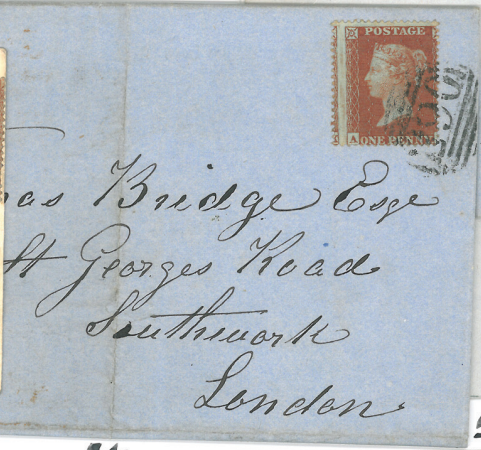 POSTAGE
A ONE PENNY
as Bridge Esqe
St Georges Road
Southwork
London